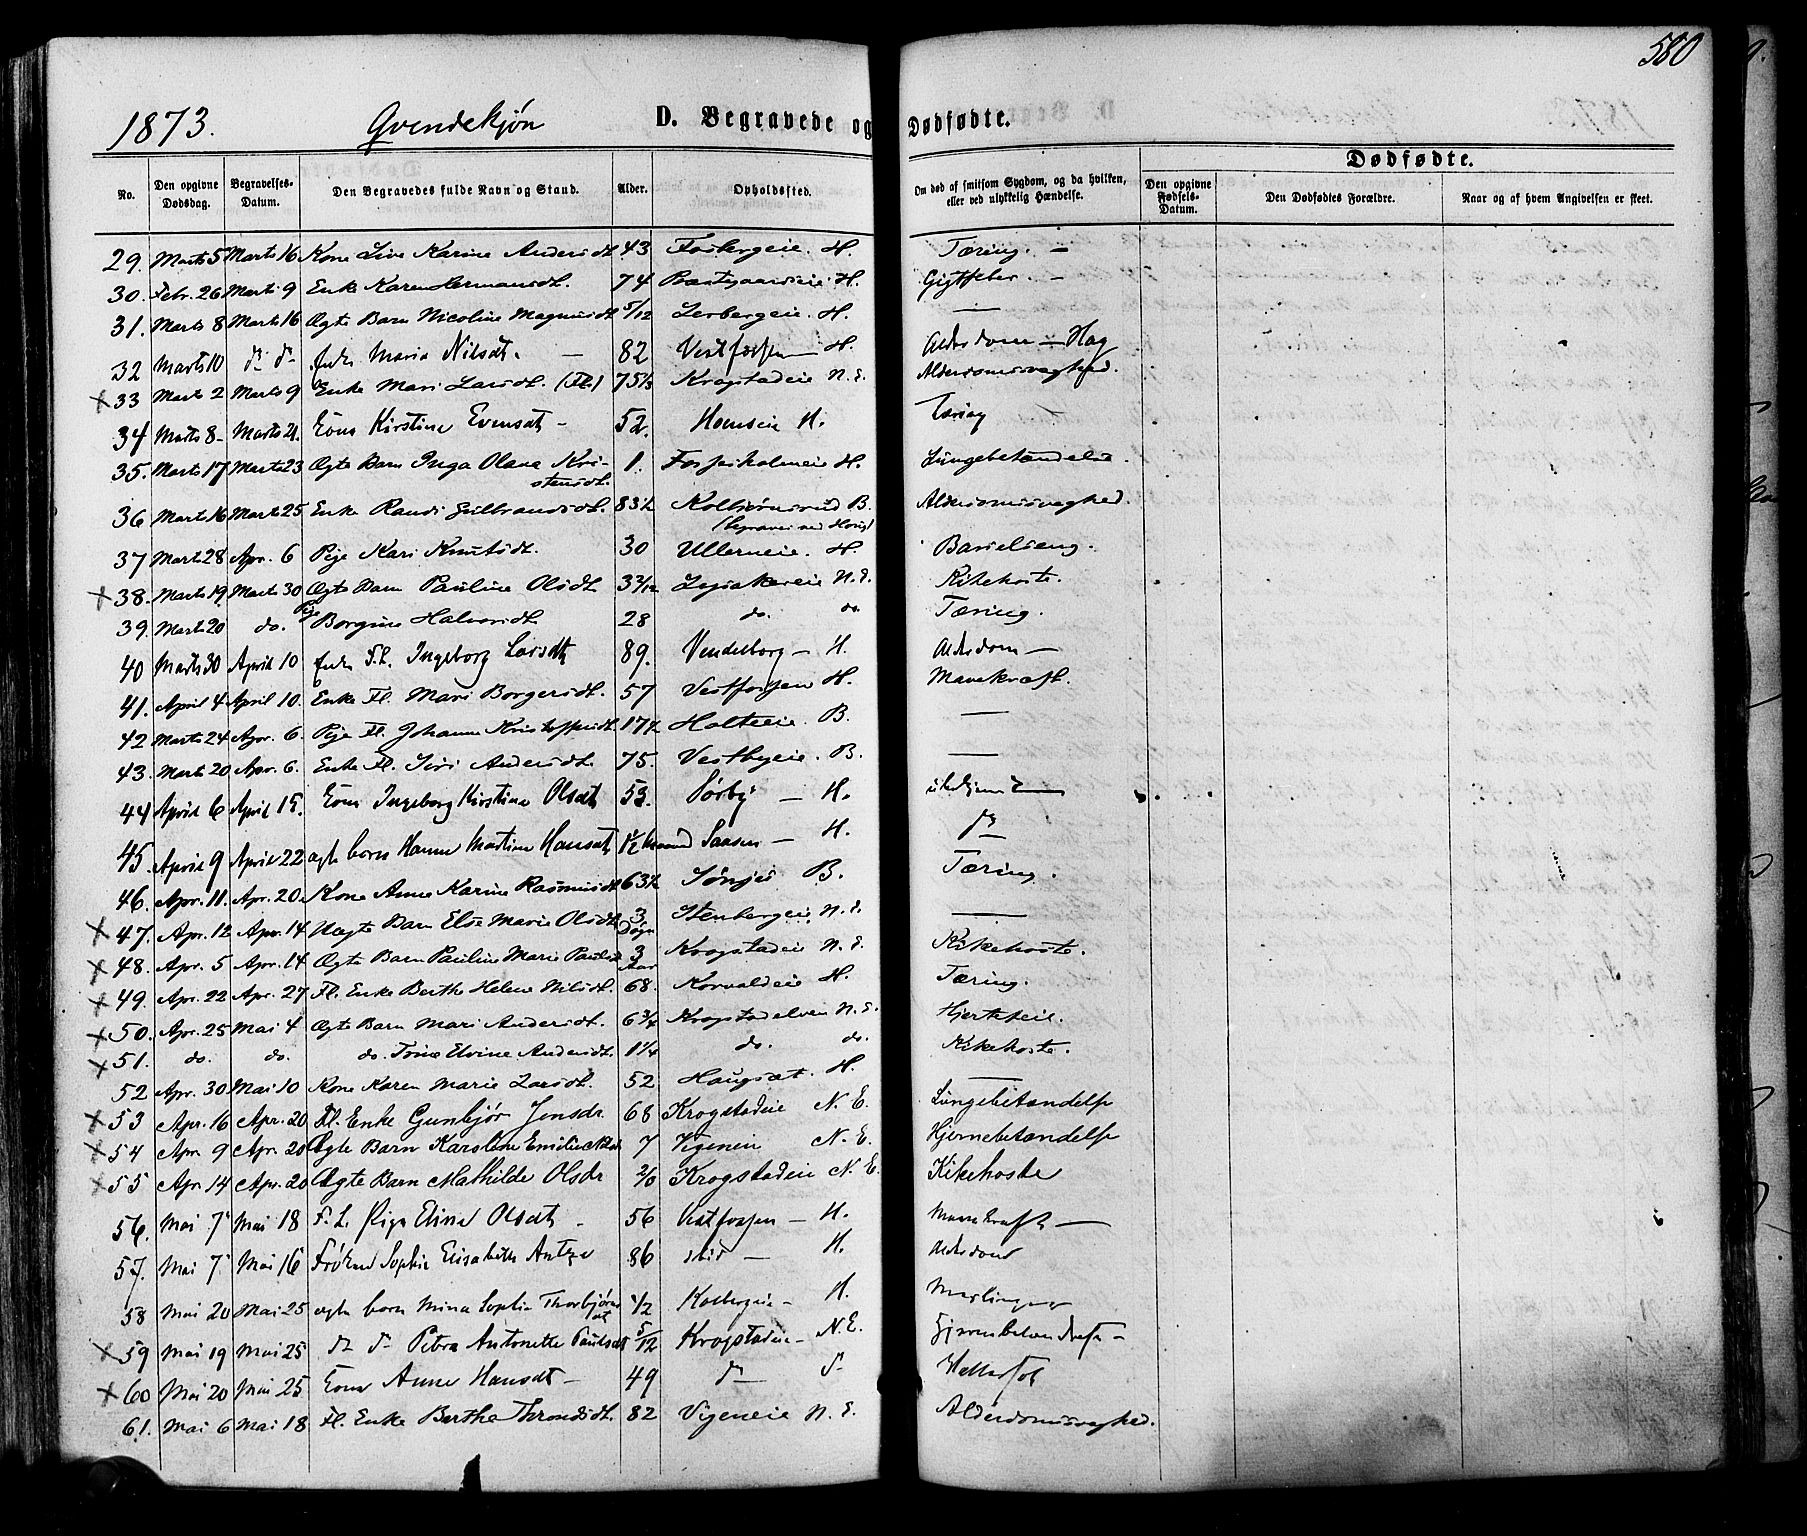 580
1873. Qvindekjøn D. Begravede og Dødfødte.
Dødfødte.
No. Den opgivne Dødsdag. Begravelses-Datum. Den Begravedes fulde Navn og Stand. Alder. Opholdssted. Om død af smitsom Sygdom, og da hvilken, eller ved ulykkelig Hændelse. Den opgivne Fødsels-Datum. Den Dødfødtes Forældre. Naar og af hvem Angivelsen er skeet.
29. Marts 5 Marts 16 Kone Live Karine Andersdt. 43 Fosbergeie. H. Tæring. —
30. Febr. 26 Marts 9 Enke Karen Hermansdt. 74 H. Gigtfeber. —
31. Marts 8 Marts 16 Ægte Barn Nicoline Magnusdt. 5/12 Lerbergeie. H. —
32 Marts 10 d° d° Enke Maria Nilsdt. — 82 Vestfossen — H. Alderdom —
33 Marts 2 Marts 9 Enke Mari Larsdt. (Fl.) 75 1/3 Krogstadeie N. E. Alderdomssvaghed.
34 Marts 8 - Marts 21. Kone Kirstine Evensdt - 52. H. Tæring
35. Marts 17 Marts 23 Ægte Barn Inga Olava Kri-
stensdt. 1. Fossesholmeie H. Lungebetændelse.
36 Marts 16 Marts 25 Enke Randi Gulbrandsdt. 83 1/2 Kolbjørnsrud B. Alderdomssvaghed.
37 Marts 28 Apr. 6 Pige Kari Knutsdt. 30 Ullerneie. H. Barselseng.
38. Marts 19. Marts 30 Ægte Barn Pauline Olsdt. 3 3/12 N. E. Kikehoste.
39. Marts 20 do. Pige Borgine Halvorsdt. 28 do. do. Tæring.
40 Marts 30 April 10 Enke F. L. Ingeborg Larsdt 89. Vendelborg — H. Alderdom —
41. April 4 April 10. Enke Fl. Mari Borgersdt. 57 Vestfossen H. Mavekræft.
42 Marts 24 Apr. 6. Pige Fl. Johanne Kristoffersdt. 17 1/2 Holteeie. B. —
43. Marts 20 Apr. 6. Enke Fl. Siri Andersdt. 75. Vestbyeie. B. —
44 April 6 April 15. Kone Ingeborg Kirstine Olsdt 53. Sørby — H.
45. April 9 April 22 ægte barn Hanne Martine Hansdt 1 1/2 Maaned Saasen — H. d°
46. Apr. 11. Apr. 20. Kone Anne Karine Rasmusdt 63 1/2 B. Tæring.
47. Apr. 12 Apr. 14 Uægte Barn Else Marie Olsdt 3 Døgn Stenbergeie, N. E. —
48. Apr. 5 Apr. 14 Ægte Barn Pauline Marie Paulsd 3 Aar Krogstadeie N. E. Kikehoste.
49. Apr. 22 Apr. 27 Fl. Enke Berthe Helene Nilsdt. 68. Korvaldeie H. Tæring.
50. Apr. 25 Mai 4 Ægte Barn Mari Andersdt. 6 3/4 Krogstadelven N. E. Hjertefeil.
51. do. do. do. Trine Elvine Andersdt. 1 1/4 do. do. Kikehoste.
52 Apr. 30 Mai 10 Kone Karen Marie Larsdt. 52 Haugsæt. H. —
53 Apr. 16 Apr. 20 Fl. Enke Gunbjør Jensdr 68 Krogstadeie N. E. Lungebetændelse
54 Apr. 9 Apr. 20 Ægte Barn Karoline Emilie 7 Vegeneie N. E. Hjernebetændelse
55 Apr. 14 Apr. 20 Ægte Barn Mathilde Olsdr Krogstadeie N. E. Kikehoste
56. Mai 7 Mai 18 F. L. Pige Eline Olsdt - 56 Vestfossen — H. Mavekræft —
57. Mai 7 Mai 16 Frøken Sophie Elisabeth 86 — H. Alderdom
58 Mai 20 Mai 25 ægte barn Mina Sophie Thorbjørns
dt 1/2 Kolbergeie — H. Mæslinger
59 Mai 19 Mai 25 d° d° Petra Antonette Paulsdt 5/12 Krogstadeie — N. E.
60 Mai 20 Mai 25 Kone Anne Hansdt — 49 d° d°
61. Mai 6 Mai 18 Fl. Enke Berthe Throndsdt. 82 Vegeneie N. E. Alderdomssvaghed.